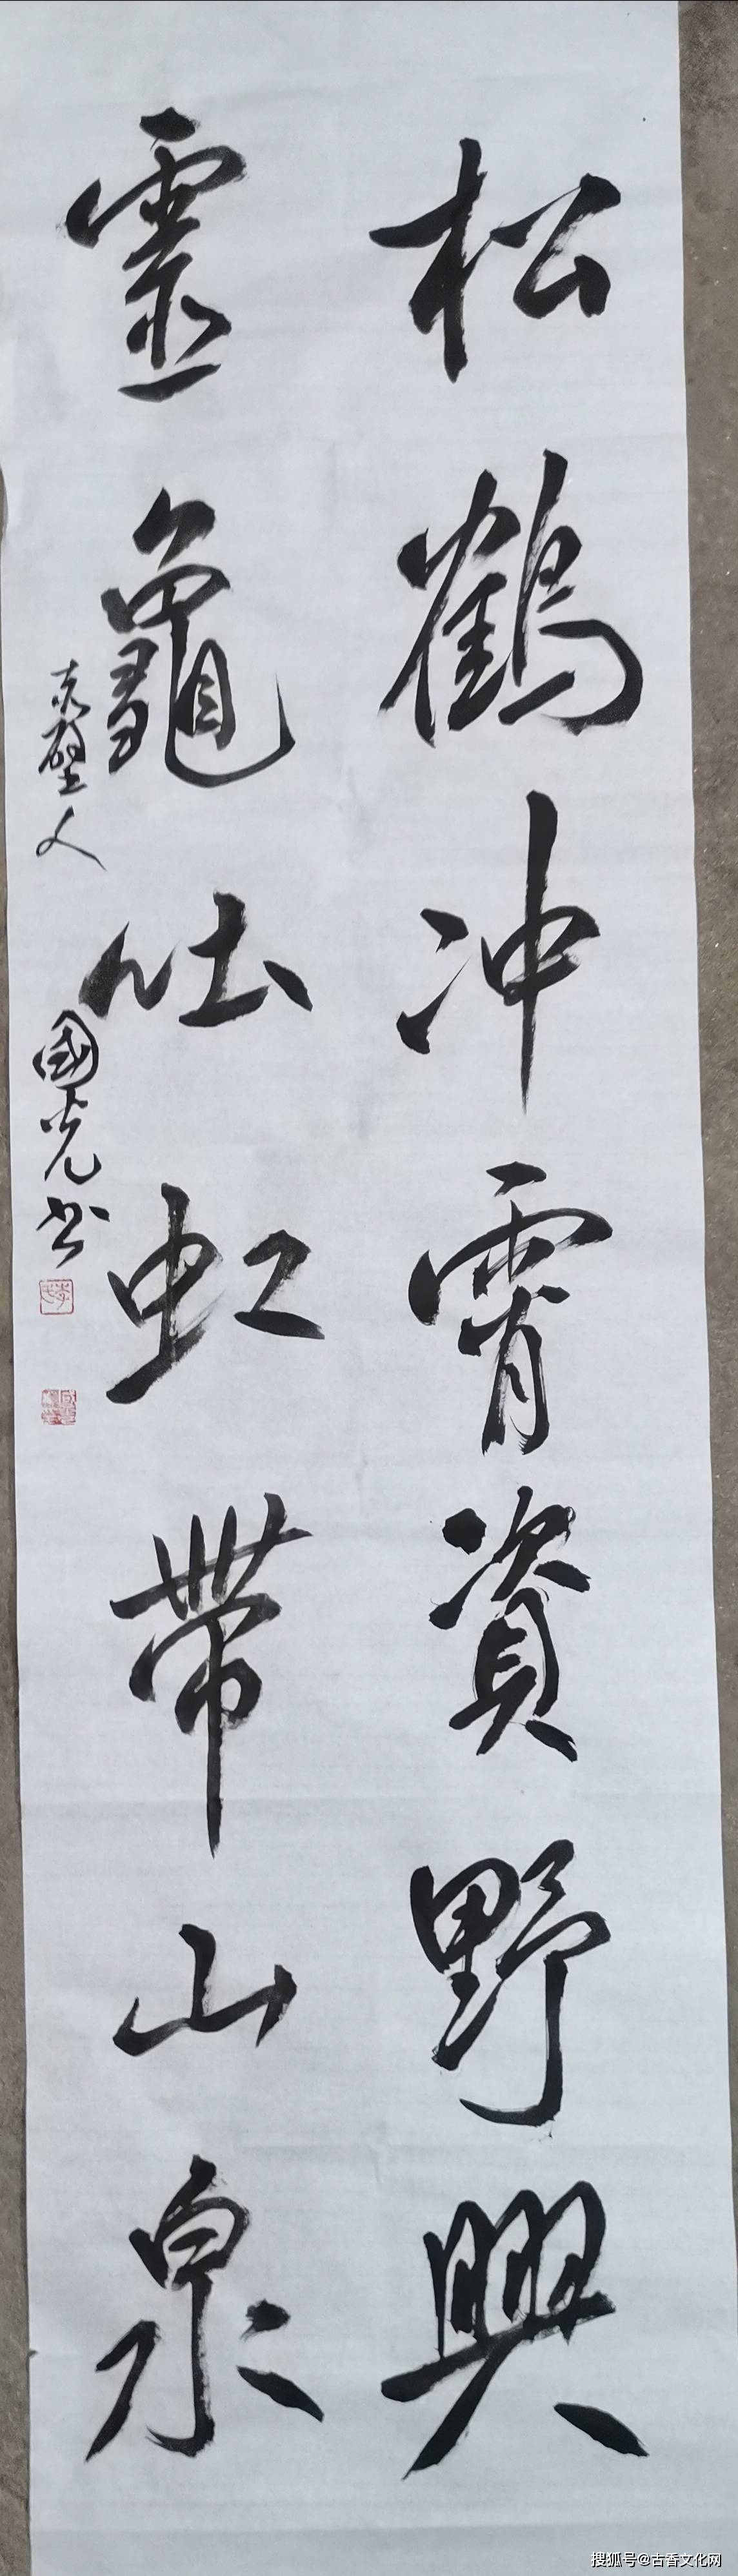 松鶴冲霄資野興
靈龜吐虹帶山泉
國光书
搜狐号@古香文化网